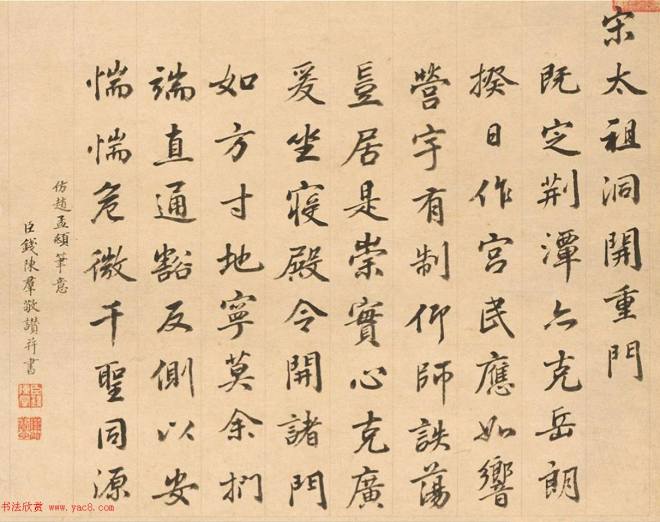 宋太祖洞開重門
既定荆潭亦克岳朗
揆日作宮民應如響
營宇有制仰師訣蕩
豈居是崇實心克廣
爰坐寑殿令開諸門
如方寸地寧莫余捫
端直通豁反側以安
惴惴危微千聖同源
仿趙孟頫筆意
臣錢陳羣敬讃并書
书法欣赏 www.yac8.com